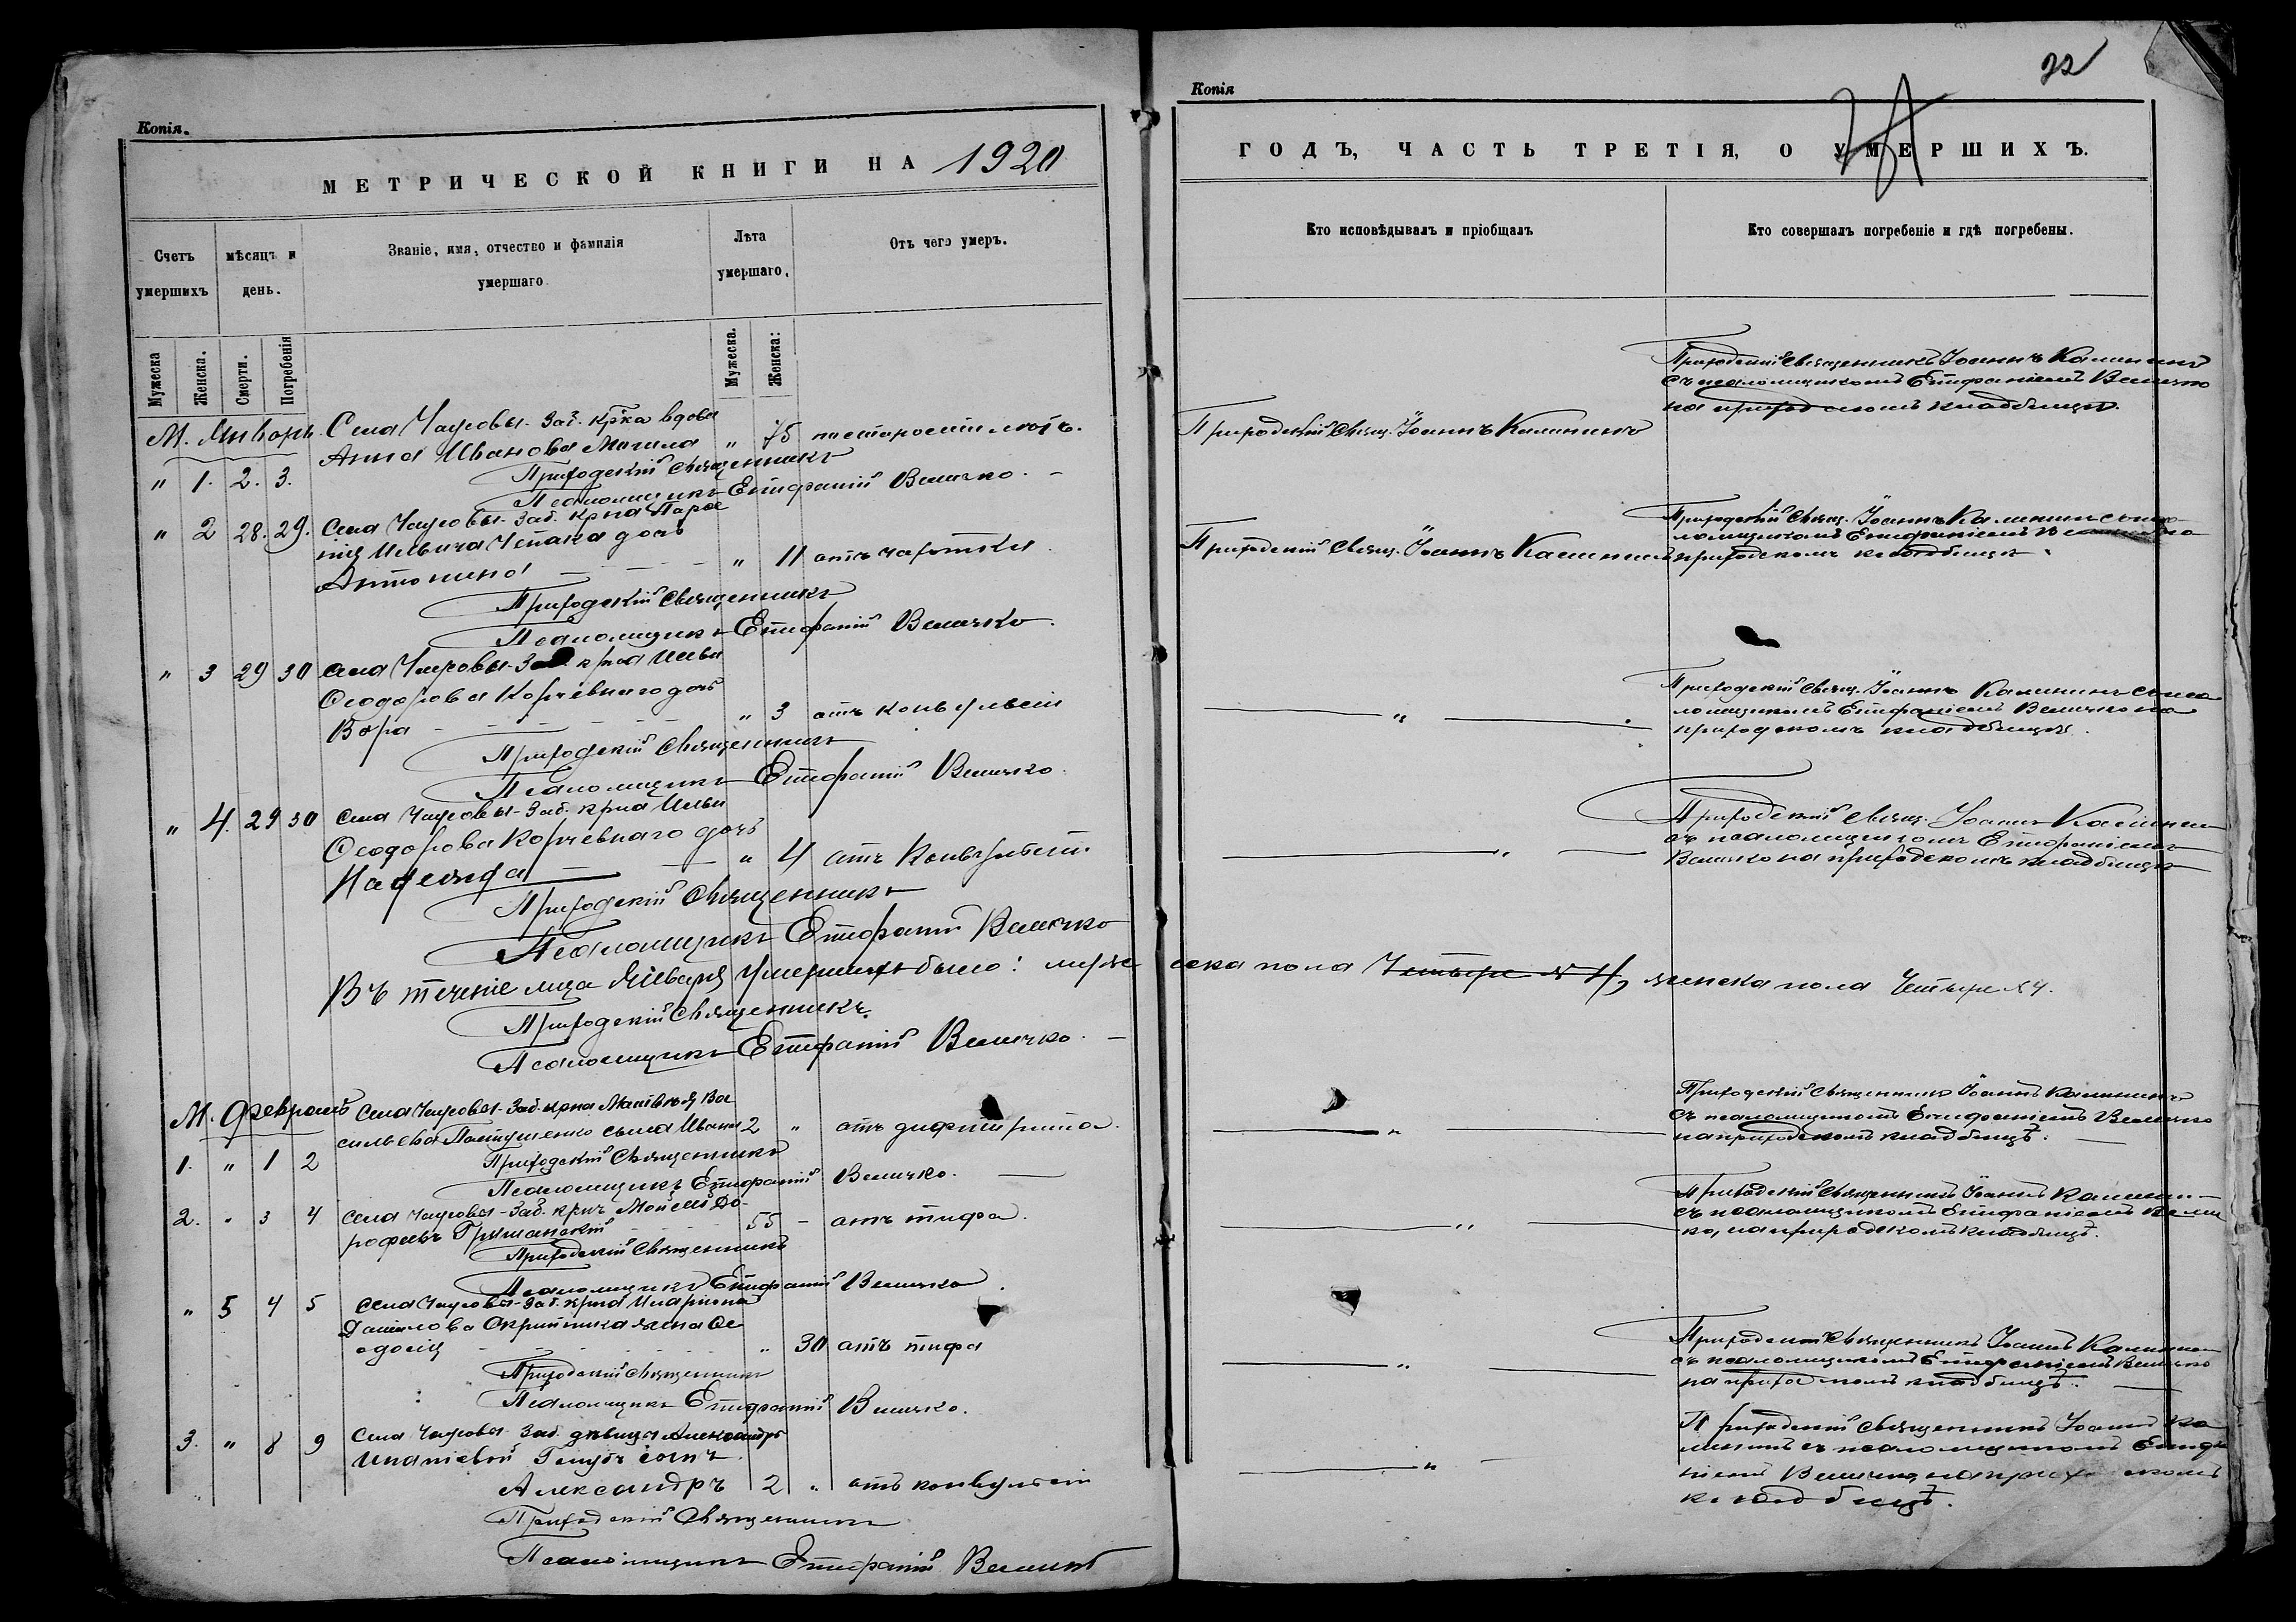 Копія.
МЕТРИЧЕСКОЙ КНИГИ НА 1920
Счетъ умершихъ
мѣсяцъ и день.
Званіе, имя, отчество и фамилія умершаго.
Лѣта умершаго.
Отъ чего умеръ.
Мужеска
Женска.
Смерти.
Погребенія
Мужеска.
Женска:
М. Январь. Села Чаусовы-Заб. кр-ка вдова
Анна Иванова " 75
" 1. 2. 3.
Приходскій Священникъ
Псаломщикъ Епифаній Величко
" 2 28. 29. Села Чаусовы-Заб. кр-на
дочь
Антонина " 11 отъ чахотки
Приходскій Священникъ
Псаломщикъ Епифаній Величко.
" 3 29 30 Села Чаусовы-Заб. кр-на Ильи
Ѳеодорова Корчевнаго дочь
Вѣра " 3 отъ конвульсіи
Приходскій Священникъ
Псаломщикъ Епифаній Величко
" 4. 29 30 Села Чаусовы-Заб. кр-на Ильи
Ѳеодорова Корчевнаго дочь
Надежда " 4 отъ конвульсіи
Приходскій Священникъ
Псаломщикъ Епифаній Величко
Въ теченіе м-ца Января умершихъ было: муже
Приходскій Священникъ
Псаломщикъ Епифаній Величко
М. Февраль Села Чаусовы-Заб. кр-на Матвѣя Ва
сильева сына Ивана 2 " отъ дифтирита
1. " 1 2 Приходскій Священникъ
Псаломщикъ Епифаній Величко.
2. " 3 4 Села Чаусовы-Заб. кр-нъ Мойсей До-
рофеевъ 55 - отъ тифа.
Приходскій Священникъ
Псаломщикъ Епифаній Величко
" 5 4 5 Села Чаусовы-Заб. кр-на Иларіона
Данилова Скрипника жена Ѳе
одосія " 30 отъ тифа
Приходскій Священникъ
Псаломщикъ Епифаній Величко.
3. " 8 9 Села Чаусовы-Заб. дѣвицы Александры
сынъ
Александръ 2 " отъ конвульсіи
Приходскій Священникъ
Псаломщикъ Епифаній
22
Копія
ГОДЪ, ЧАСТЬ ТРЕТІЯ, О УМЕРШИХЪ.
Кто исповѣдывалъ и пріобщалъ
Кто совершалъ погребеніе и гдѣ погребены.
Приходскій Священникъ Іоаннъ Калининъ
съ псаломщикомъ Епифаніемъ Величко
на приходскомъ кладбищѣ.
Приходскій Свящ. Іоаннъ Калининъ
Приходскій Свящ. Іоаннъ Калининъ съ пса-
ломщикомъ Епифаніемъ Величко на
приходскомъ кладбищѣ.
Приходскій Свящ. Іоаннъ Калининъ
Приходскій Свящ. Іоаннъ Калининъ съ пса
ломщикомъ Епифаніемъ Величко на
приходскомъ кладбищѣ.
"
Приходскій Свящ. Іоаннъ Калининъ
съ псаломщикомъ Епифаніемъ
Величко на приходскомъ кладбищѣ
"
ска пола Четыре 4, женска пола Четыре 4.
Приходскій Священникъ Іоаннъ Калининъ
съ псаломщикомъ Епифаніемъ Величко
на приходскомъ кладбищѣ.
"
Приходскій Священникъ Іоаннъ Калинин-
съ псаломщикомъ Епифаніемъ Велич
ко, на приходскомъ кладбищѣ.
"
Приходскій Священникъ Іоаннъ Калинин
съ псаломщикомъ Епифаніемъ Величко
на приходскомъ кладбищѣ.
"
Приходскій Священникъ Іоаннъ Ка
лининъ съ псаломщикомъ Епифа
ніемъ Величко, на приходскомъ
кладбищѣ.
"